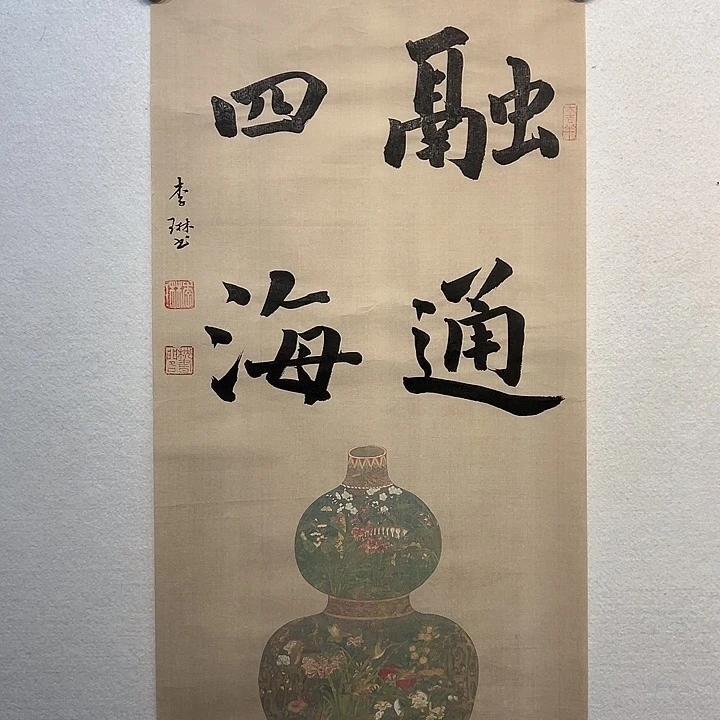 融通
四海
李琳书